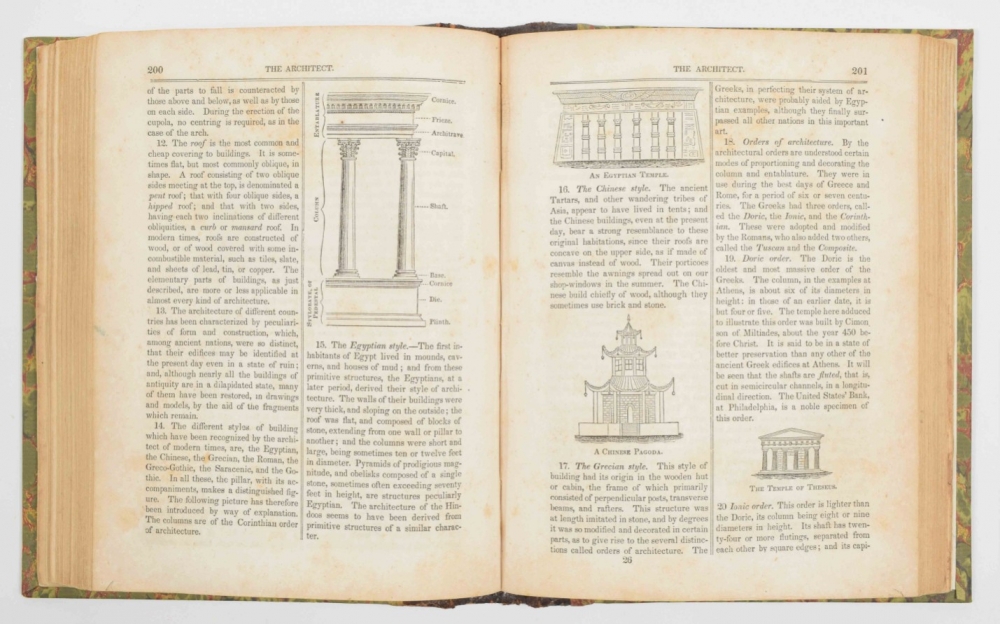 200
THE ARCHITECT.
of the parts to fall is counteracted by
those above and below, as well as by those
on each side. During the erection of the
cupola, no centring is required, as in the
case of the arch.
12. The roof is the most common and
cheap covering to buildings. It is some-
times flat, but most commonly oblique, in
shape. A roof consisting of two oblique
sides meeting at the top, is denominated a
pent roof; that with four oblique sides, a
hipped roof; and that with two sides,
having each two inclinations of different
obliquities, a curb or mansard roof. In
modern times, roofs are constructed of
wood, or of wood covered with some in-
combustible material, such as tiles, slate,
and sheets of lead, tin, or copper. The
elementary parts of buildings, as just
described, are more or less applicable in
almost every kind of architecture.
13. The architecture of different coun-
tries has been characterized by peculiari-
ties of form and construction, which,
among ancient nations, were so distinct,
that their edifices may be identified at
the present day even in a state of ruin;
and, although nearly all the buildings of
antiquity are in a dilapidated state, many
of them have been restored, in drawings
and models, by the aid of the fragments
which remain.
14. The different styles of building
which have been recognized by the archi-
tect of modern times, are, the Egyptian,
the Chinese, the Grecian, the Roman, the
Greco-Gothic, the Saracenic, and the Go-
thic. In all these, the pillar, with its ac-
companiments, makes a distinguished fig-
ure. The following picture has therefore
been introduced by way of explanation.
The columns are of the Corinthian order
of architecture.
ENTABLATURE
COLUMN
STYLOBATE, OR
PEDESTAL
Cornice.
Frieze.
Architrave
Capital.
Shaft.
Base.
Cornice
Die.
Plinth.
15. The Egyptian style.—The first in-
habitants of Egypt lived in mounds, cav-
erns, and houses of mud; and from these
primitive structures, the Egyptians, at a
later period, derived their style of archi-
tecture. The walls of their buildings were
very thick, and sloping on the outside; the
roof was flat, and composed of blocks of
stone, extending from one wall or pillar to
another; and the columns were short and
large, being sometimes ten or twelve feet
in diameter. Pyramids of prodigious mag-
nitude, and obelisks composed of a single
stone, sometimes often exceeding seventy
feet in height, are structures peculiarly
Egyptian. The architecture of the Hin-
doos seems to have been derived from
primitive structures of a similar charac-
ter.
THE ARCHITECT.
201
AN EGYPTIAN TEMPLE.
16. The Chinese style. The ancient
Tartars, and other wandering tribes of
Asia, appear to have lived in tents; and
the Chinese buildings, even at the present
day, bear a strong resemblance to these
original habitations, since their roofs are
concave on the upper side, as if made of
canvas instead of wood. Their porticoes
resemble the awnings spread out on our
shop-windows in the summer. The Chi-
nese build chiefly of wood, although they
sometimes use brick and stone.
A CHINESE PAGODA.
17. The Grecian style. This style of
building had its origin in the wooden hut
or cabin, the frame of which primarily
consisted of perpendicular posts, transverse
beams, and rafters. This structure was
at length imitated in stone, and by degrees
it was so modified and decorated in certain
parts, as to give rise to the several distinc-
tions called orders of architecture. The
26
Greeks, in perfecting their system of ar-
chitecture, were probably aided by Egyp-
tian examples, although they finally sur-
passed all other nations in this important
art.
18. Orders of architecture. By the
architectural orders are understood certain
modes of proportioning and decorating the
column and entablature. They were in
use during the best days of Greece and
Rome, for a period of six or seven centu-
ries. The Greeks had three orders, call-
ed the Doric, the Ionic, and the Corinth-
ian. These were adopted and modified
by the Romans, who also added two others,
called the Tuscan and the Composite.
19. Doric order. The Doric is the
oldest and most massive order of the
Greeks. The column, in the examples at
Athens, is about six of its diameters in
height; in those of an earlier date, it is
but four or five. The temple here adduced
to illustrate this order was built by Cimon,
son of Miltiades, about the year 450 be-
fore Christ. It is said to be in a state of
better preservation than any other of the
ancient Greek edifices at Athens. It will
be seen that the shafts are fluted, that is,
cut in semicircular channels, in a longitu-
dinal direction. The United States' Bank,
at Philadelphia, is a noble specimen of
this order.
THE TEMPLE OF THESEUS.
20 Ionic order. This order is lighter than
the Doric, its column being eight or nine
diameters in height. Its shaft has twen-
ty-four or more flutings, separated from
each other by square edges; and its capi-